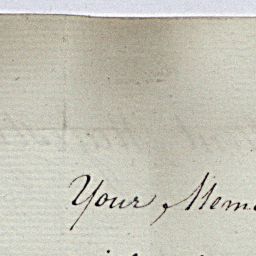 Your Mem